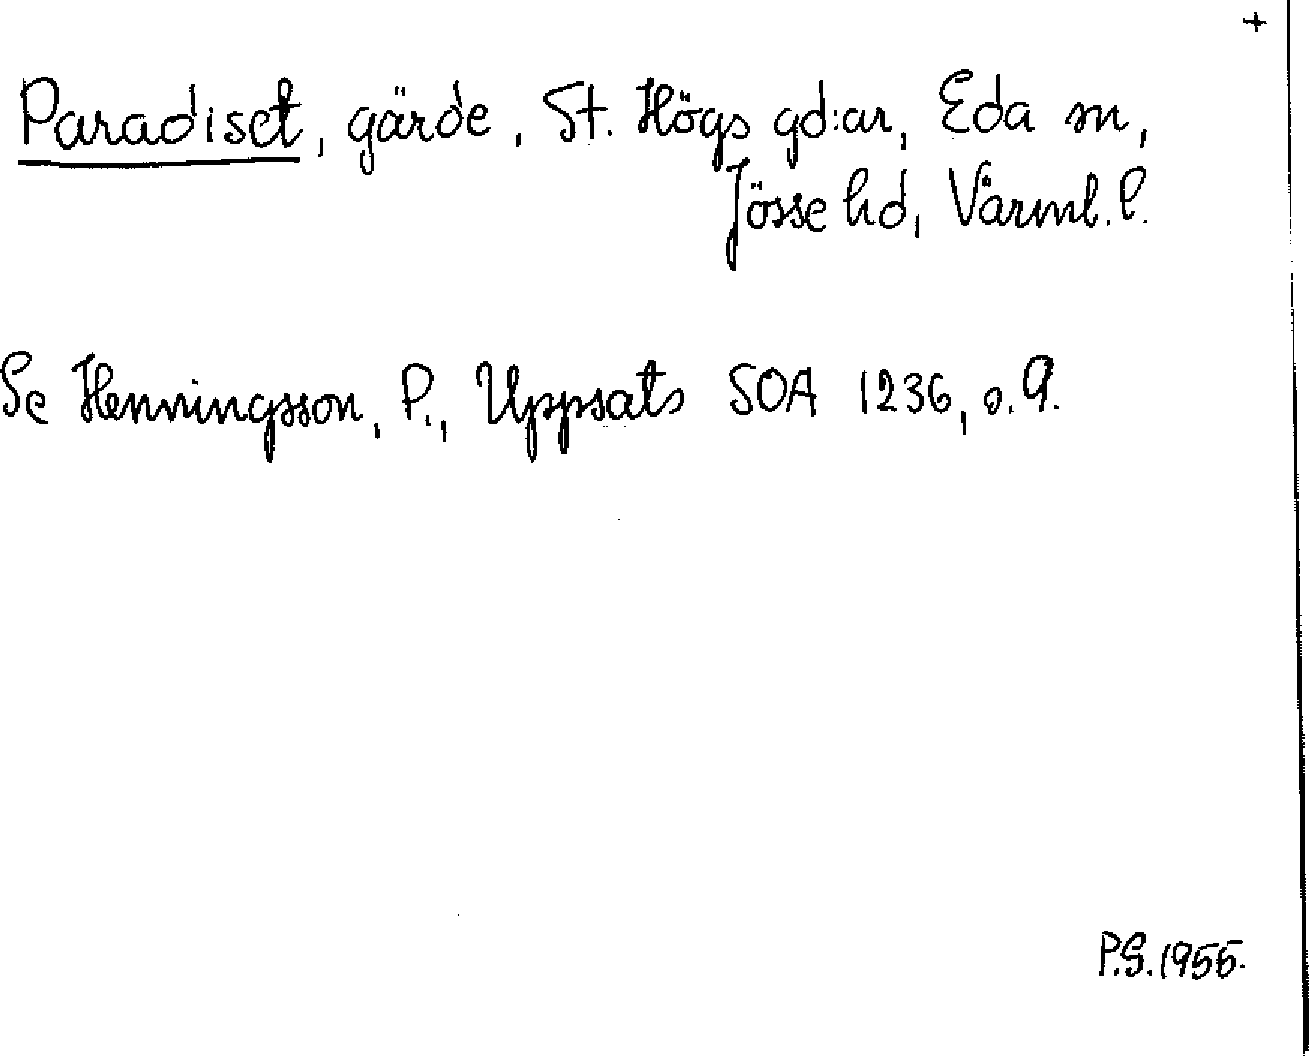 +
Paradiset, gärde, St. Högs gd:ar, Eda sn,
Jösse hd, Värml. l.
Se Henningsson, P., Uppsats SOA 1236, s. 9.
P.G. 1955.